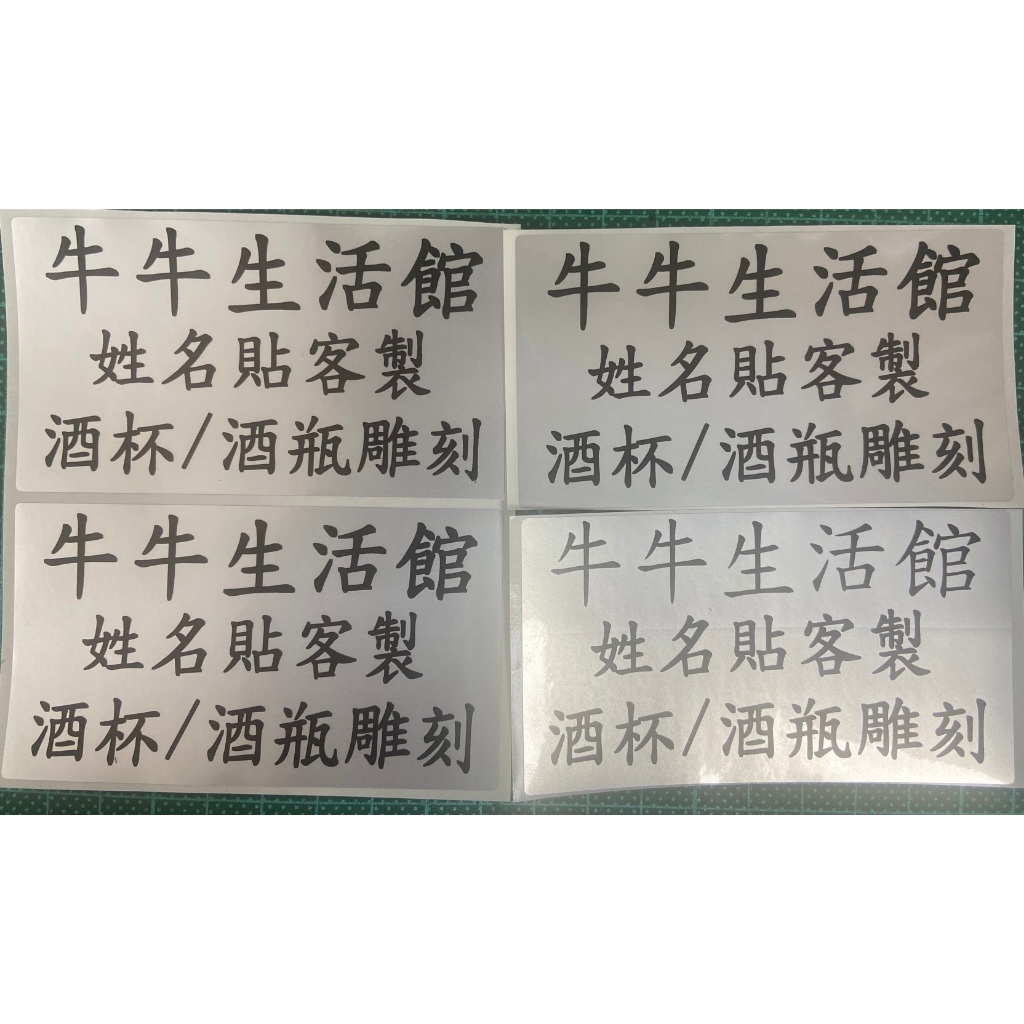 牛牛生活館
姓名貼客製
酒杯/酒瓶雕刻
牛牛生活館
姓名貼客製
酒杯/酒瓶雕刻
牛牛生活館
姓名貼客製
酒杯/酒瓶雕刻
牛牛生活館
姓名貼客製
酒杯/酒瓶雕刻